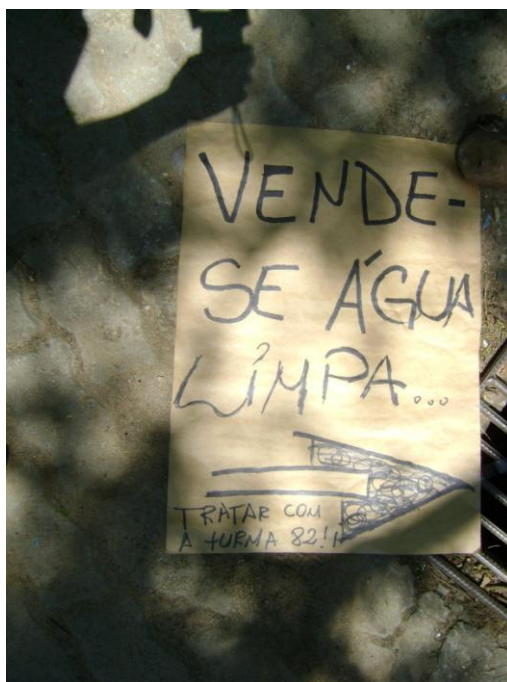 VENDE-
SE ÁGUA
LIMPA...
TRATAR COM
A TURMA 82!